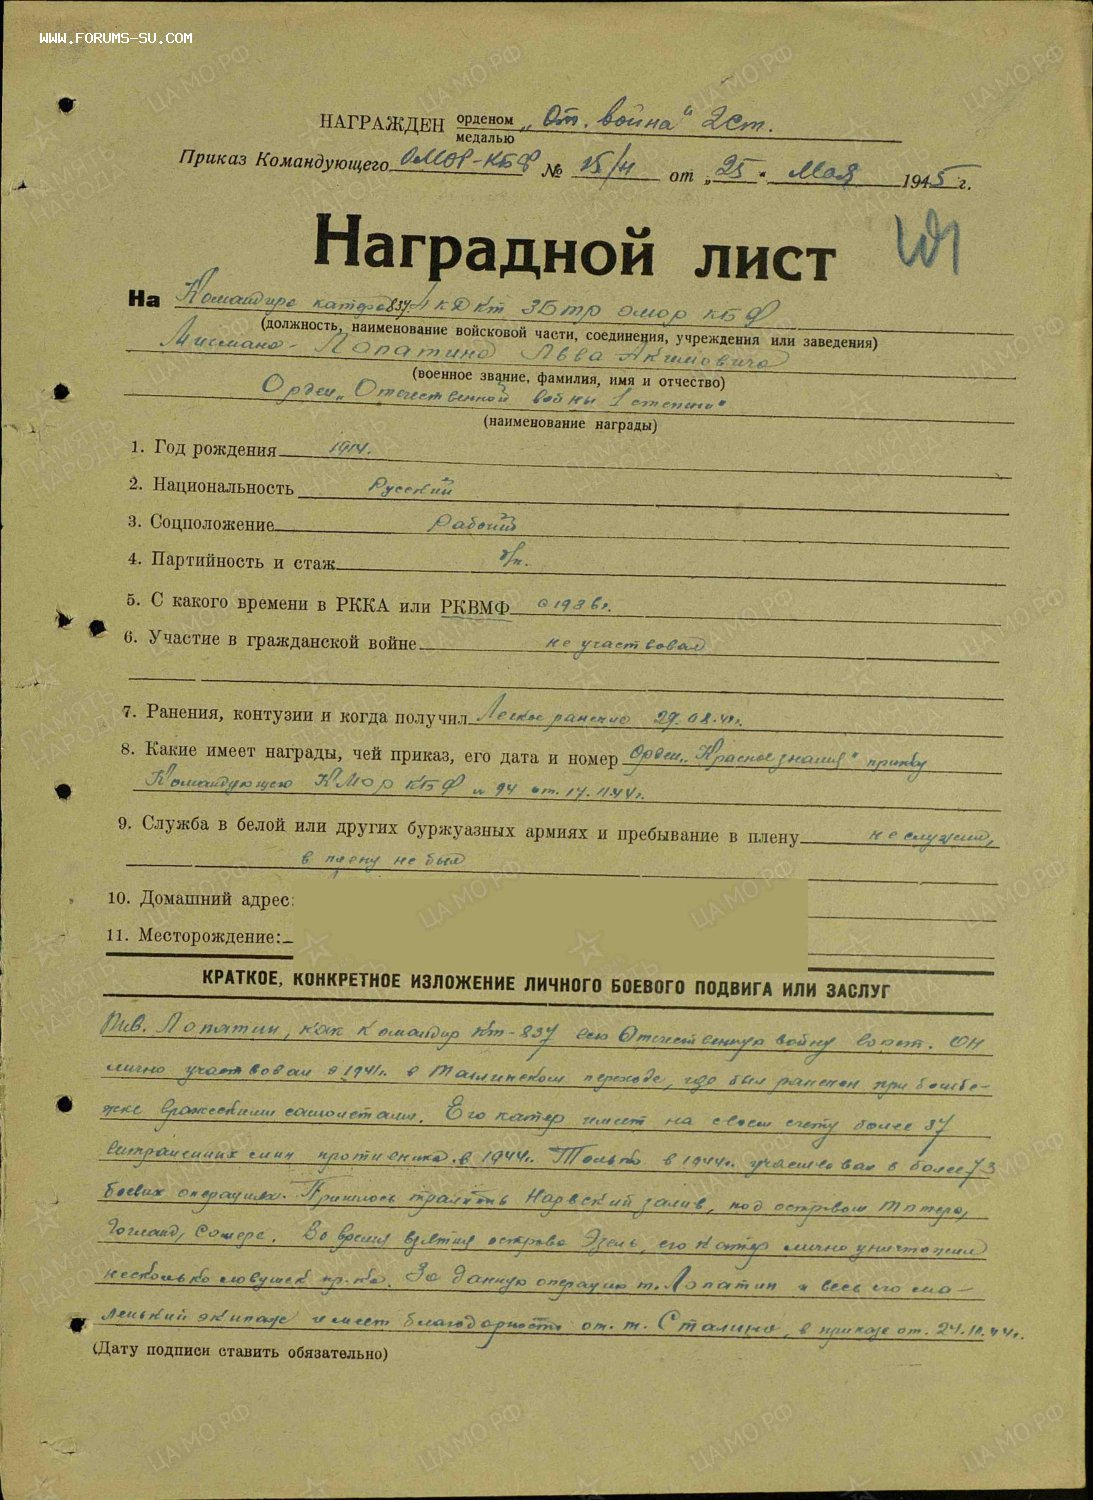 WWW.FORUMS-SU.COM
НАГРАЖДЕН орденом „От. война" 2 ст.
медалью
Приказ Командующего ОМОР-КБФ № 25/н от „25" мая 1945 г.
Наградной лист
На Командира катера 837 4 кДкт 3Бтр омор КБФ
(должность, наименование войсковой части, соединения, учреждения или заведения)
Мичмана - Лопатина Льва Акимовича
(военное звание, фамилия, имя и отчество)
Орден „Отечественной войны 1 степени"
(наименование награды)
1. Год рождения 1914.
2. Национальность Русский
3. Соцположение Рабочий
4. Партийность и стаж б/п.
5. С какого времени в РККА или РКВМФ с 1936 г.
6. Участие в гражданской войне не участвовал
7. Ранения, контузии и когда получил Легкое ранение 29.08.41г.
8. Какие имеет награды, чей приказ, его дата и номер Орден „Красное знамя"
Командующего КМор КБФ № 94 от.
9. Служба в белой или других буржуазных армиях и пребывание в плену не служил,
в плену не был
10. Домашний адрес:
11. Месторождение:
КРАТКОЕ, КОНКРЕТНОЕ ИЗЛОЖЕНИЕ ЛИЧНОГО БОЕВОГО ПОДВИГА ИЛИ ЗАСЛУГ
Тов. Лопатин, как командир Кт-837 всю Отечественную войну воюет. Он
лично участвовал в 1941г. в Таллинском переходе, где был ранен при бомбе-
жке вражескими самолетами. Его катер имеет на своем счету более 37
вытраленных мин противника в 1944г. Только в 1944г. участвовал в более 73
боевых операциях. Пришлось тралить Нарвский залив, под островом Тютерс,
Гогланд, Сомерс. Во время взятия острова Эзель, его катер лично уничтожил
несколько ловушек пр-ка. За данную операцию т. Лопатин и весь его ма-
ленький экипаж имеет благодарность от т. Сталина, в приказе от 24.11.44г.
(Дату подписи ставить обязательно)
ЦАМО РФ
ПАМЯТЬ НАРОДА